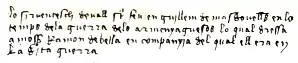 so si vencesch devall sr. feu en guillem de masdovelles en lo
temps dela guerra delo armenyaquesos lo qual dressa
a mossen Ramon de bella en companyia del qual ell era en
la dita guerra